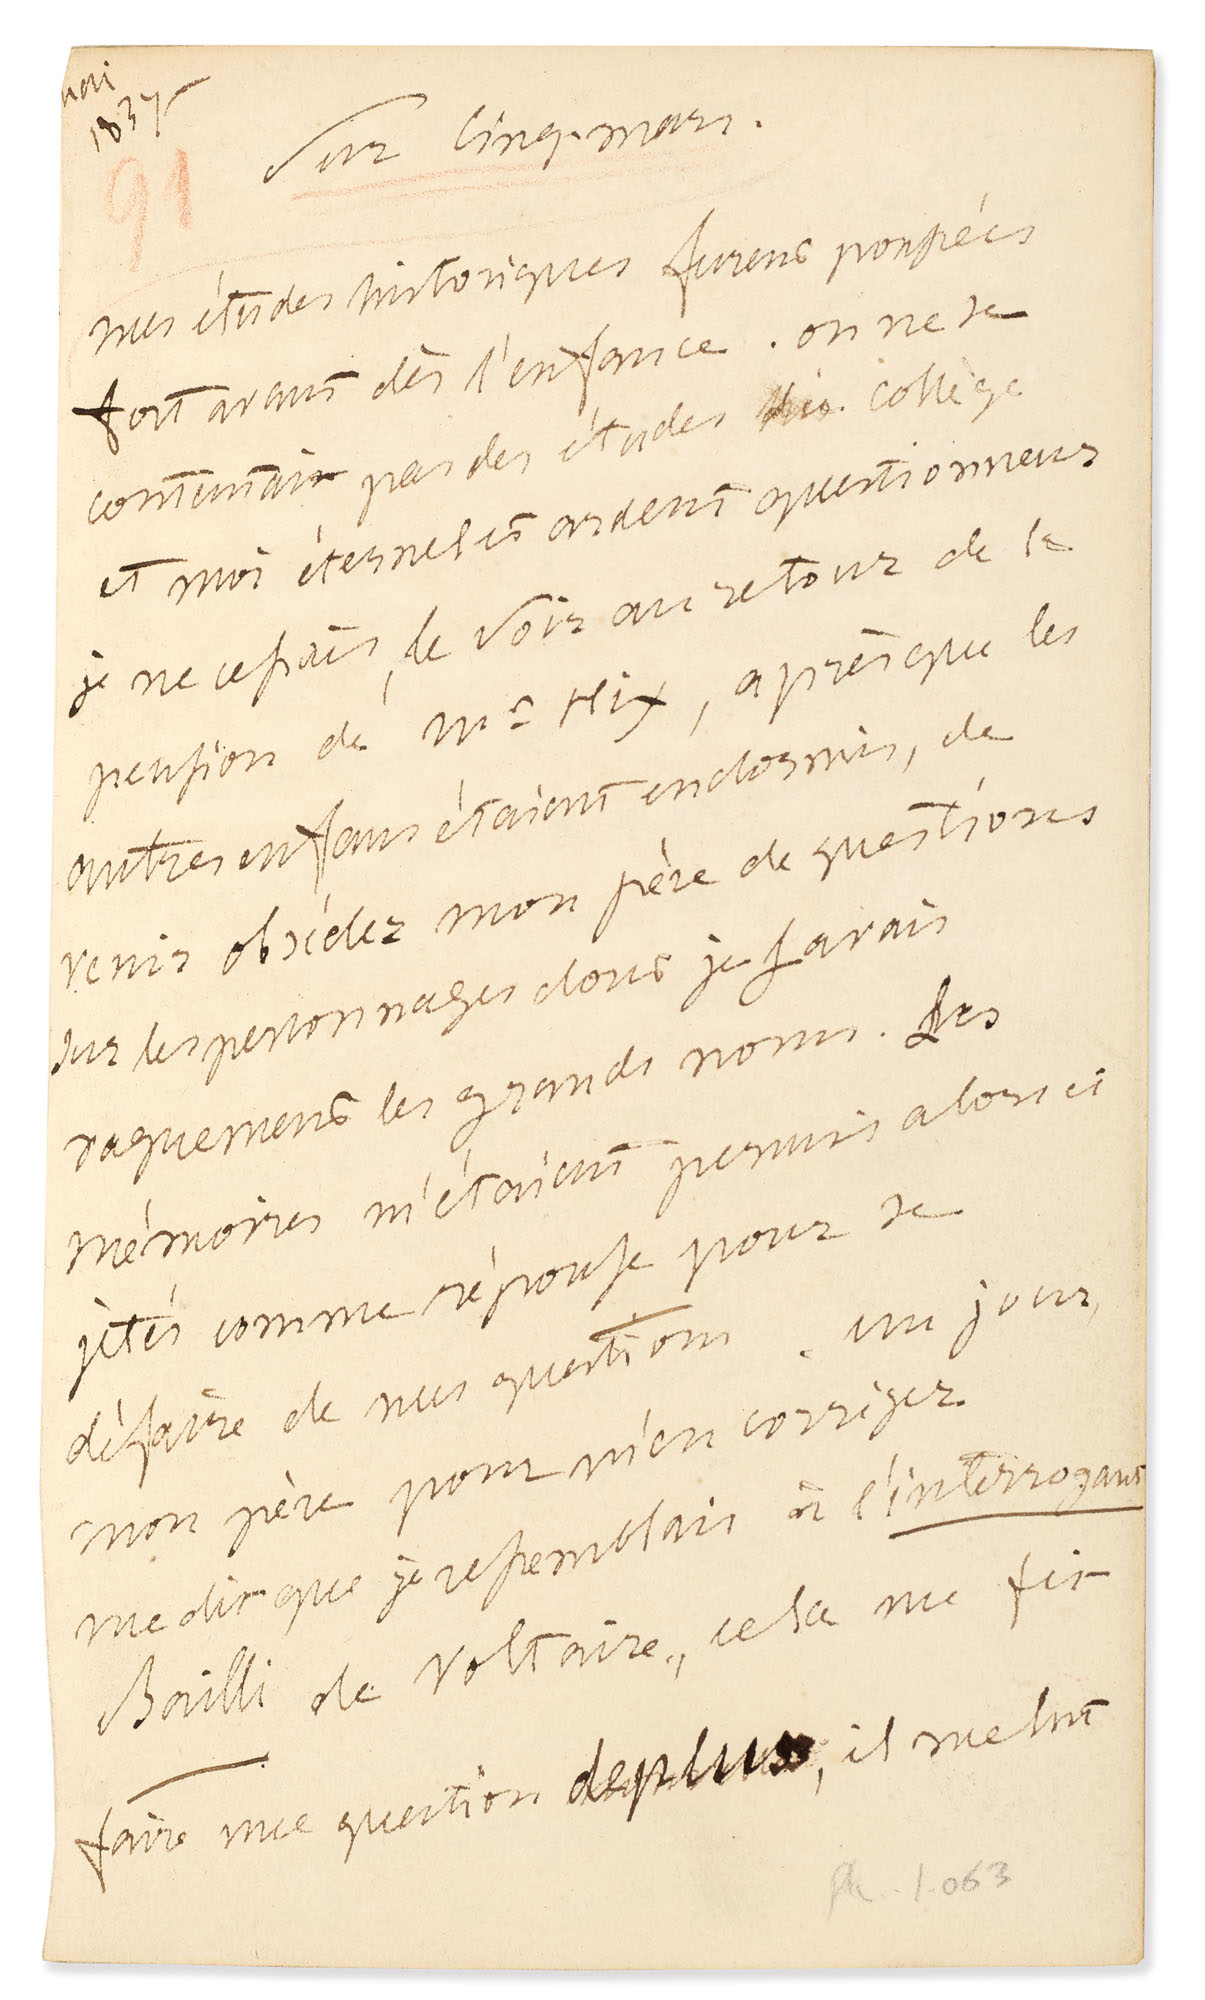 mai
1837
91
Sur Cinq-mars.
mes études historiques furent poussées
fort avant dès l'enfance. on ne se
contentait pas des études du collège
et moi éternel et ardent questionneur
je ne cessais, de voir au retour de la
pension de Mr Hix, après que les
autres enfans étaient endormis, de
venir obséder mon père de questions
sur les personnages dont je savais
vaguement les grands noms. Les
mémoires m'étaient permis alors et
jetés comme réponse pour se
défaire de mes questions. un jour,
mon père pour m'en corriger
me dit que je ressemblais à l'interrogant
Bailli de Voltaire, cela me fit
faire une question de plus, il me lut
1.063